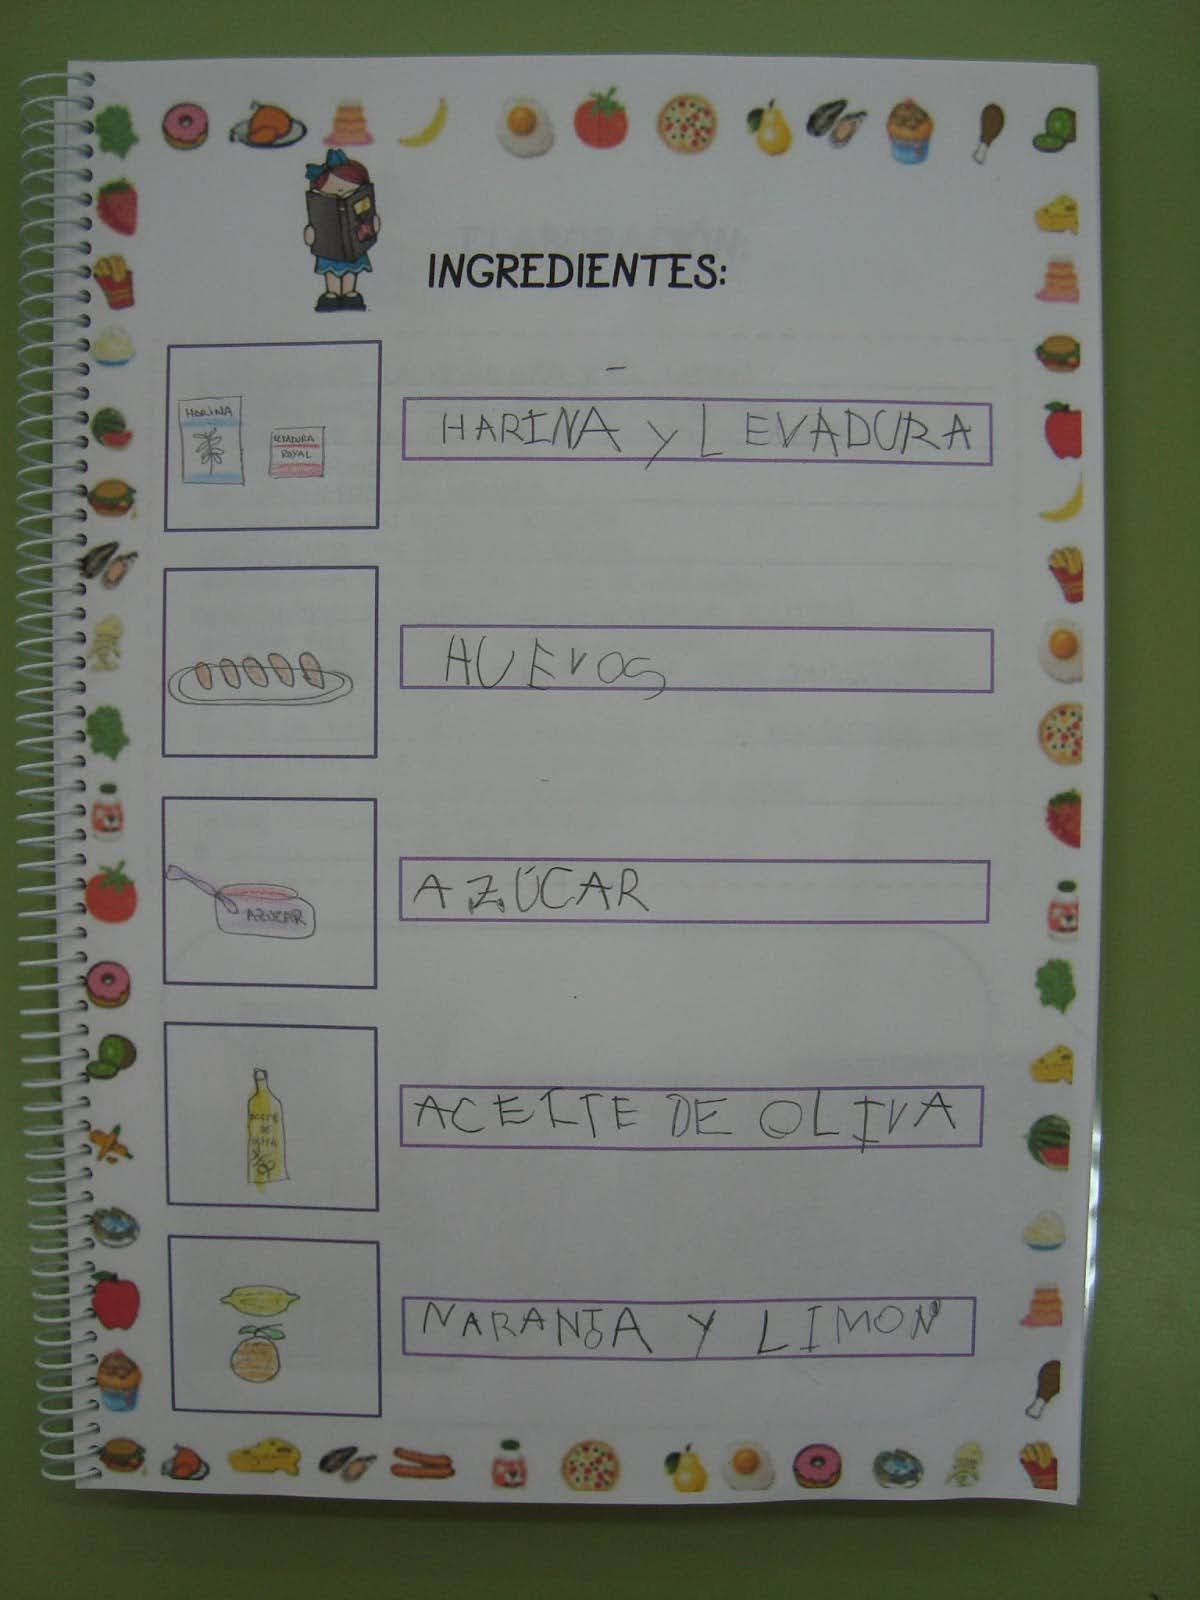 INGREDIENTES:
HARINA
LEVADURA
ROYAL
HARINA y LEVADURA
HUEVOS
AZUCAR
AZÚCAR
ACEITE
DE
OLIVA
ACEITE DE OLIVA
NARANJA Y LIMON